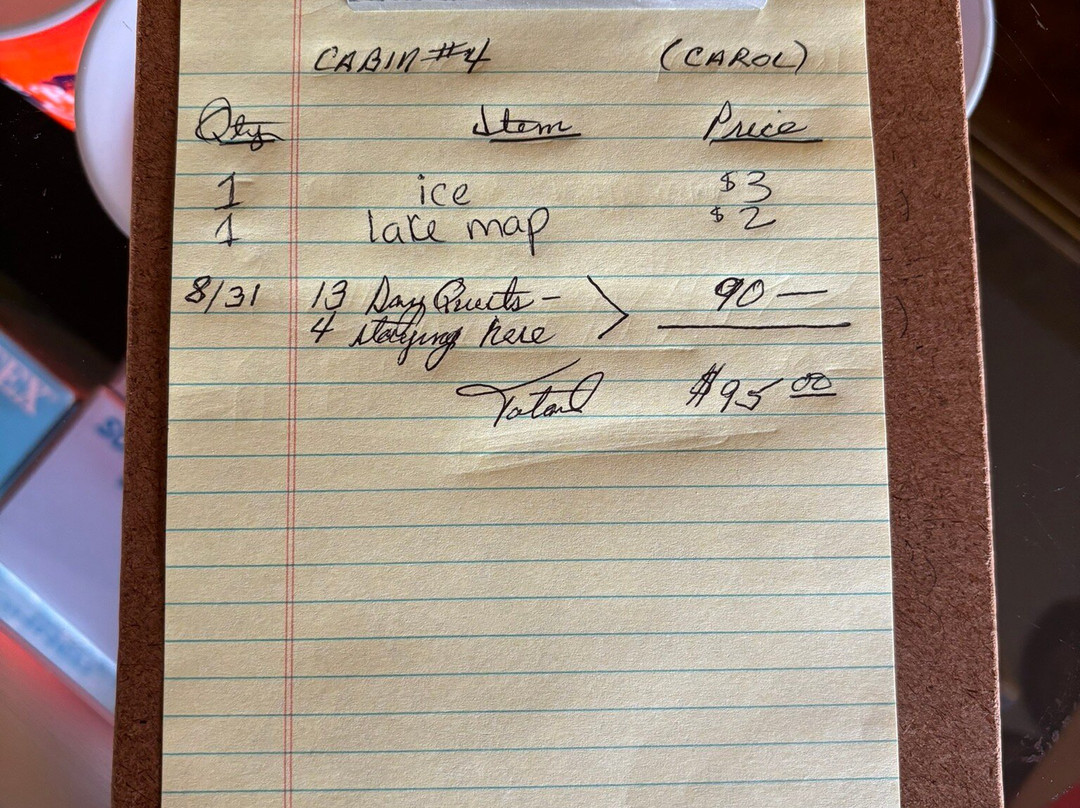 CABIN #4 (CAROL)
Qty Item Price
1 ice $3
1 lake map $2
8/31 13 Day Guests - 90 —
4 staying here
Total $95 00